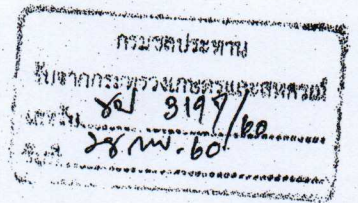 กรมชลประทาน
รับจากกระทรวงเกษตรและสหกรณ์
เลขรับ ชป 3197/60
วันที่ 28 กพ. 60